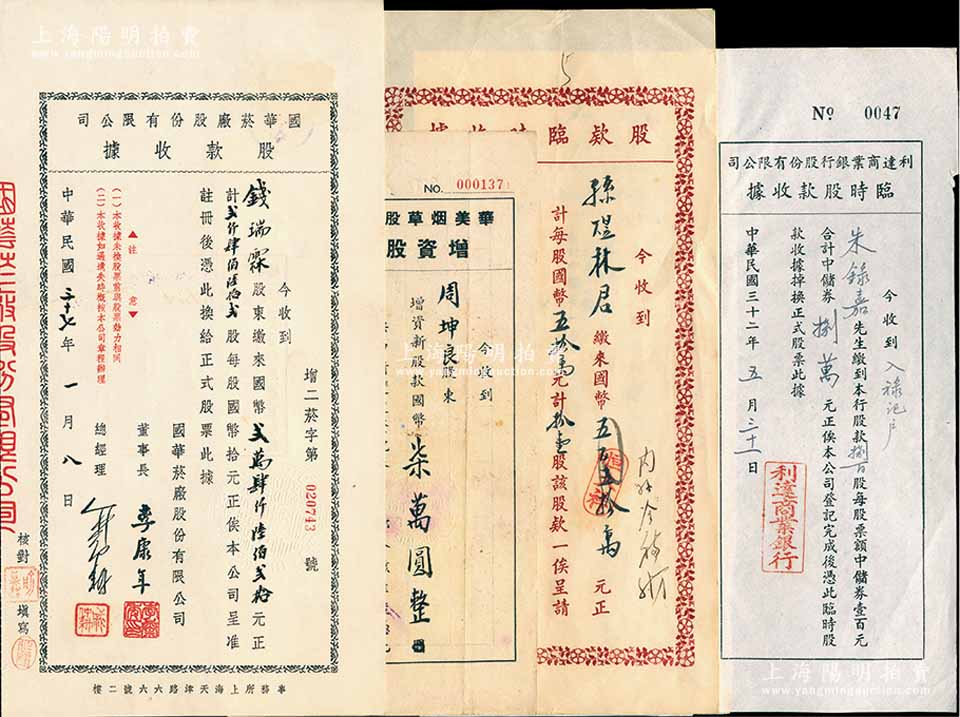 上海陽明拍賣
www.yangmingauction.com
國華菸廠股份有限公司
股款收據
增二菸字第 020743 號
今收到
錢瑞霖 股東繳來國幣貳萬肆仟陸佰貳拾元正
計貳仟肆佰陸拾貳股每股國幣拾元正俟本公司呈准
註冊後憑此換給正式股票此據
國華菸廠股份有限公司
董事長 李康年
總經理
▲注意▼
(一)本收據未換股票前與股票効力相同
(二)本收據如遇遺失時概按本公司章程辦理
中華民國三十七年一月八日
核對
填寫
事務所上海天津路六六號二樓
NO. 000137
華美烟草股
增資股
今收到
周坤良股東
增資新股款國幣柒萬圓整
上海陽明拍賣
www.yangmingauction.com
5
股款臨時收據
今收到
孫煜林君繳來國幣五百五拾萬元正
計每股國幣五拾萬元計拾壹股該股款一俟呈請
No 0047
利達商業銀行股份有限公司
臨時股款收據
今收到 入祿記戶
朱錄嘉先生繳到本行股款捌百股每股票額中儲券壹百元
合計中儲券捌萬元正俟本公司登記完成後憑此臨時股
款收據掉換正式股票此據
中華民國三十二年五月三十一日
利達商業銀行
上海陽明拍賣
www.yangmingauction.com